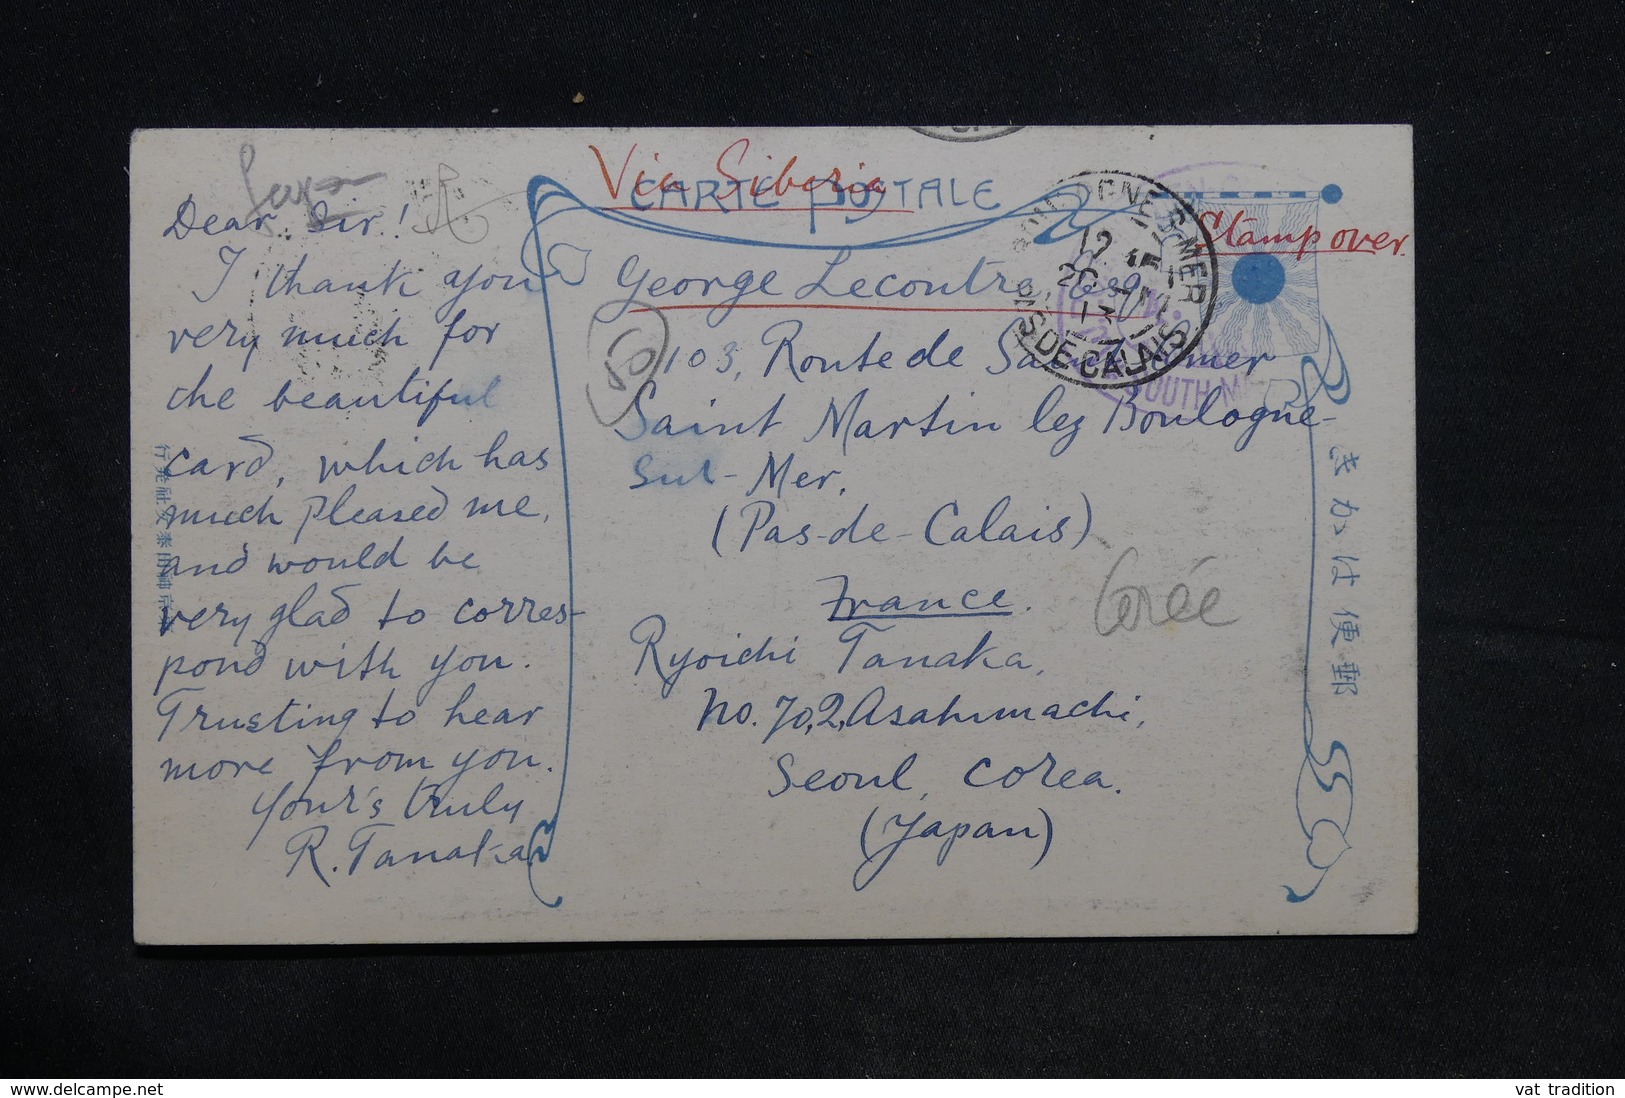 Via Siberia
CARTE POSTALE
Stamp over.
Dear Sir!
I thank you
very much for
the beautiful
card, which has
much pleased me,
and would be
very glad to corres-
pond with you.
Trusting to hear
more from you.
Your's truly
R. Tanaka
George Lecoutre
103, Route de Saint Omer
Saint Martin lez Boulogne-
Sur-Mer.
(Pas-de-Calais)
France.
Corée
Ryoichi Tanaka,
No. 70, 2, Asahimachi,
Seoul, Corea.
(Japan)
BOULOGNE-S-MER
PAS DE CALAIS
きかは便郵
© delcampe.net
vat_tradition